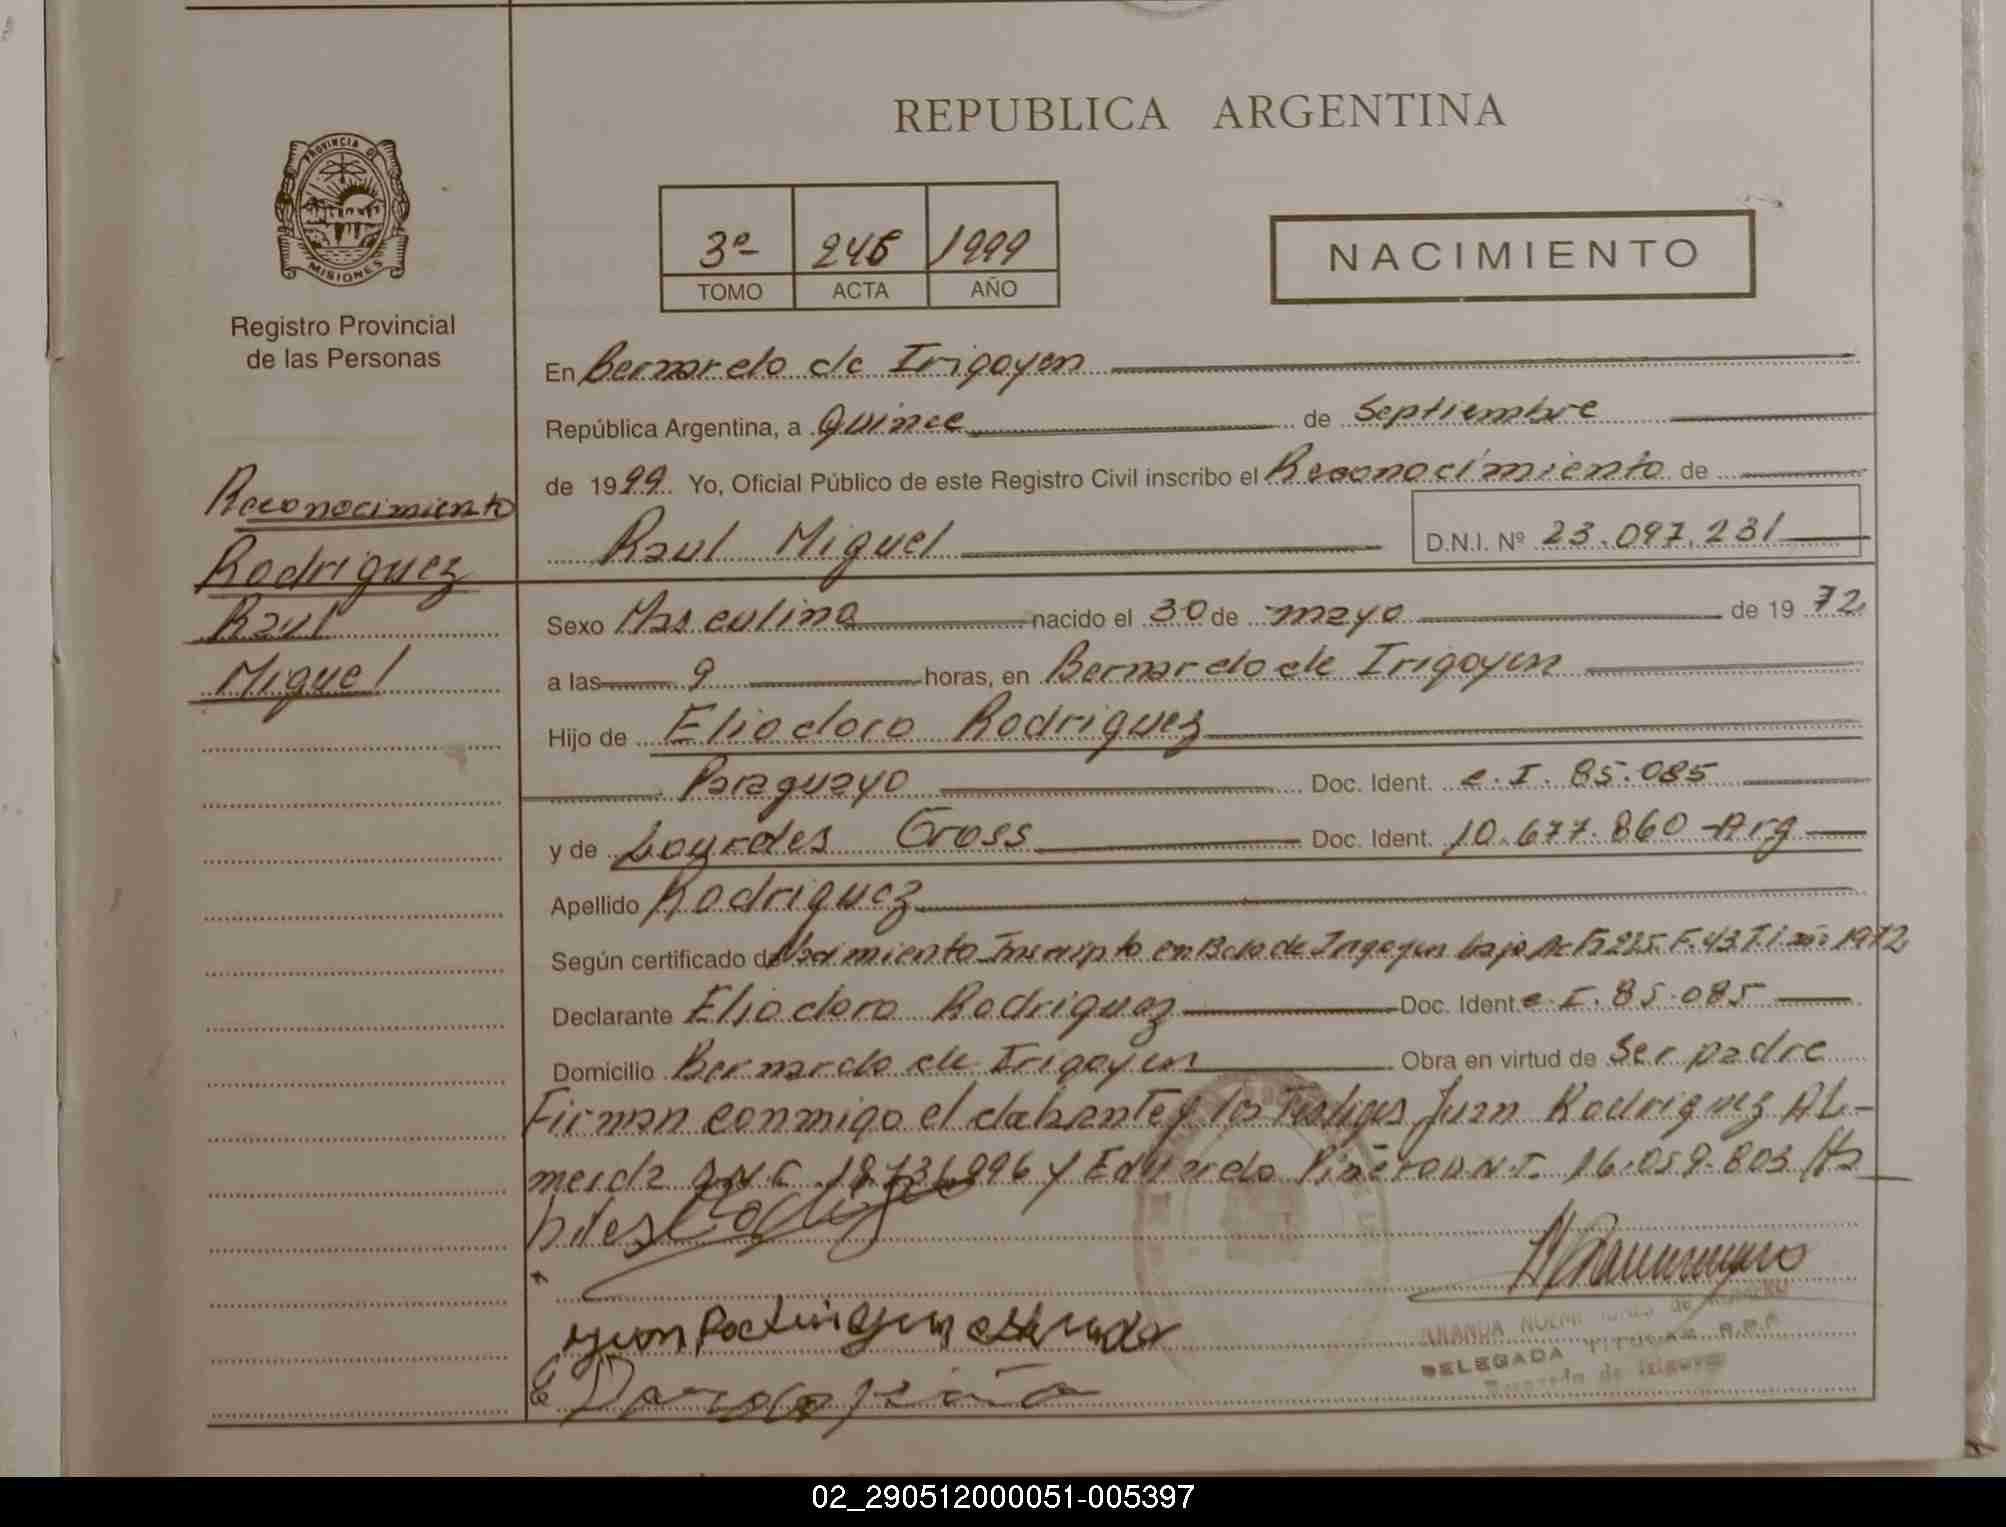 REPUBLICA ARGENTINA
PROVINCIA DE
MISIONES
Registro Provincial
de las Personas
3º 246 1999
TOMO ACTA AÑO
NACIMIENTO
Reconocimiento
Rodriguez
Raul
Miguel
En Bernardo de Irigoyen
República Argentina, a Quince de Septiembre
de 1999. Yo, Oficial Público de este Registro Civil inscribo el Reconocimiento de
Raul Miguel D.N.I. Nº 23.097.231
Sexo Masculino nacido el 30 de mayo de 1972
a las 9 horas, en Bernardo de Irigoyen
Hijo de Eliodoro Rodriguez
Paraguayo Doc. Ident. C.I. 85.085
y de Lourdes Gross Doc. Ident. 10.677.860 Arg
Apellido Rodriguez
Según certificado de Nacimiento Inscripto en Bdo de Irigoyen bajo 225 F.43 T.I año 1972
Declarante Eliodoro Rodriguez Doc. Ident. C.I. 85.085
Domicilio Bernardo de Irigoyen Obra en virtud de Ser padre
Firman conmigo el y los Testigos Juan Rodriguez AL-
meida y Eduardo 16.059.803 Ha
biles
DELEGADA TITULAR R.P.P.
Bernardo de Irigoyen
02_290512000051-005397